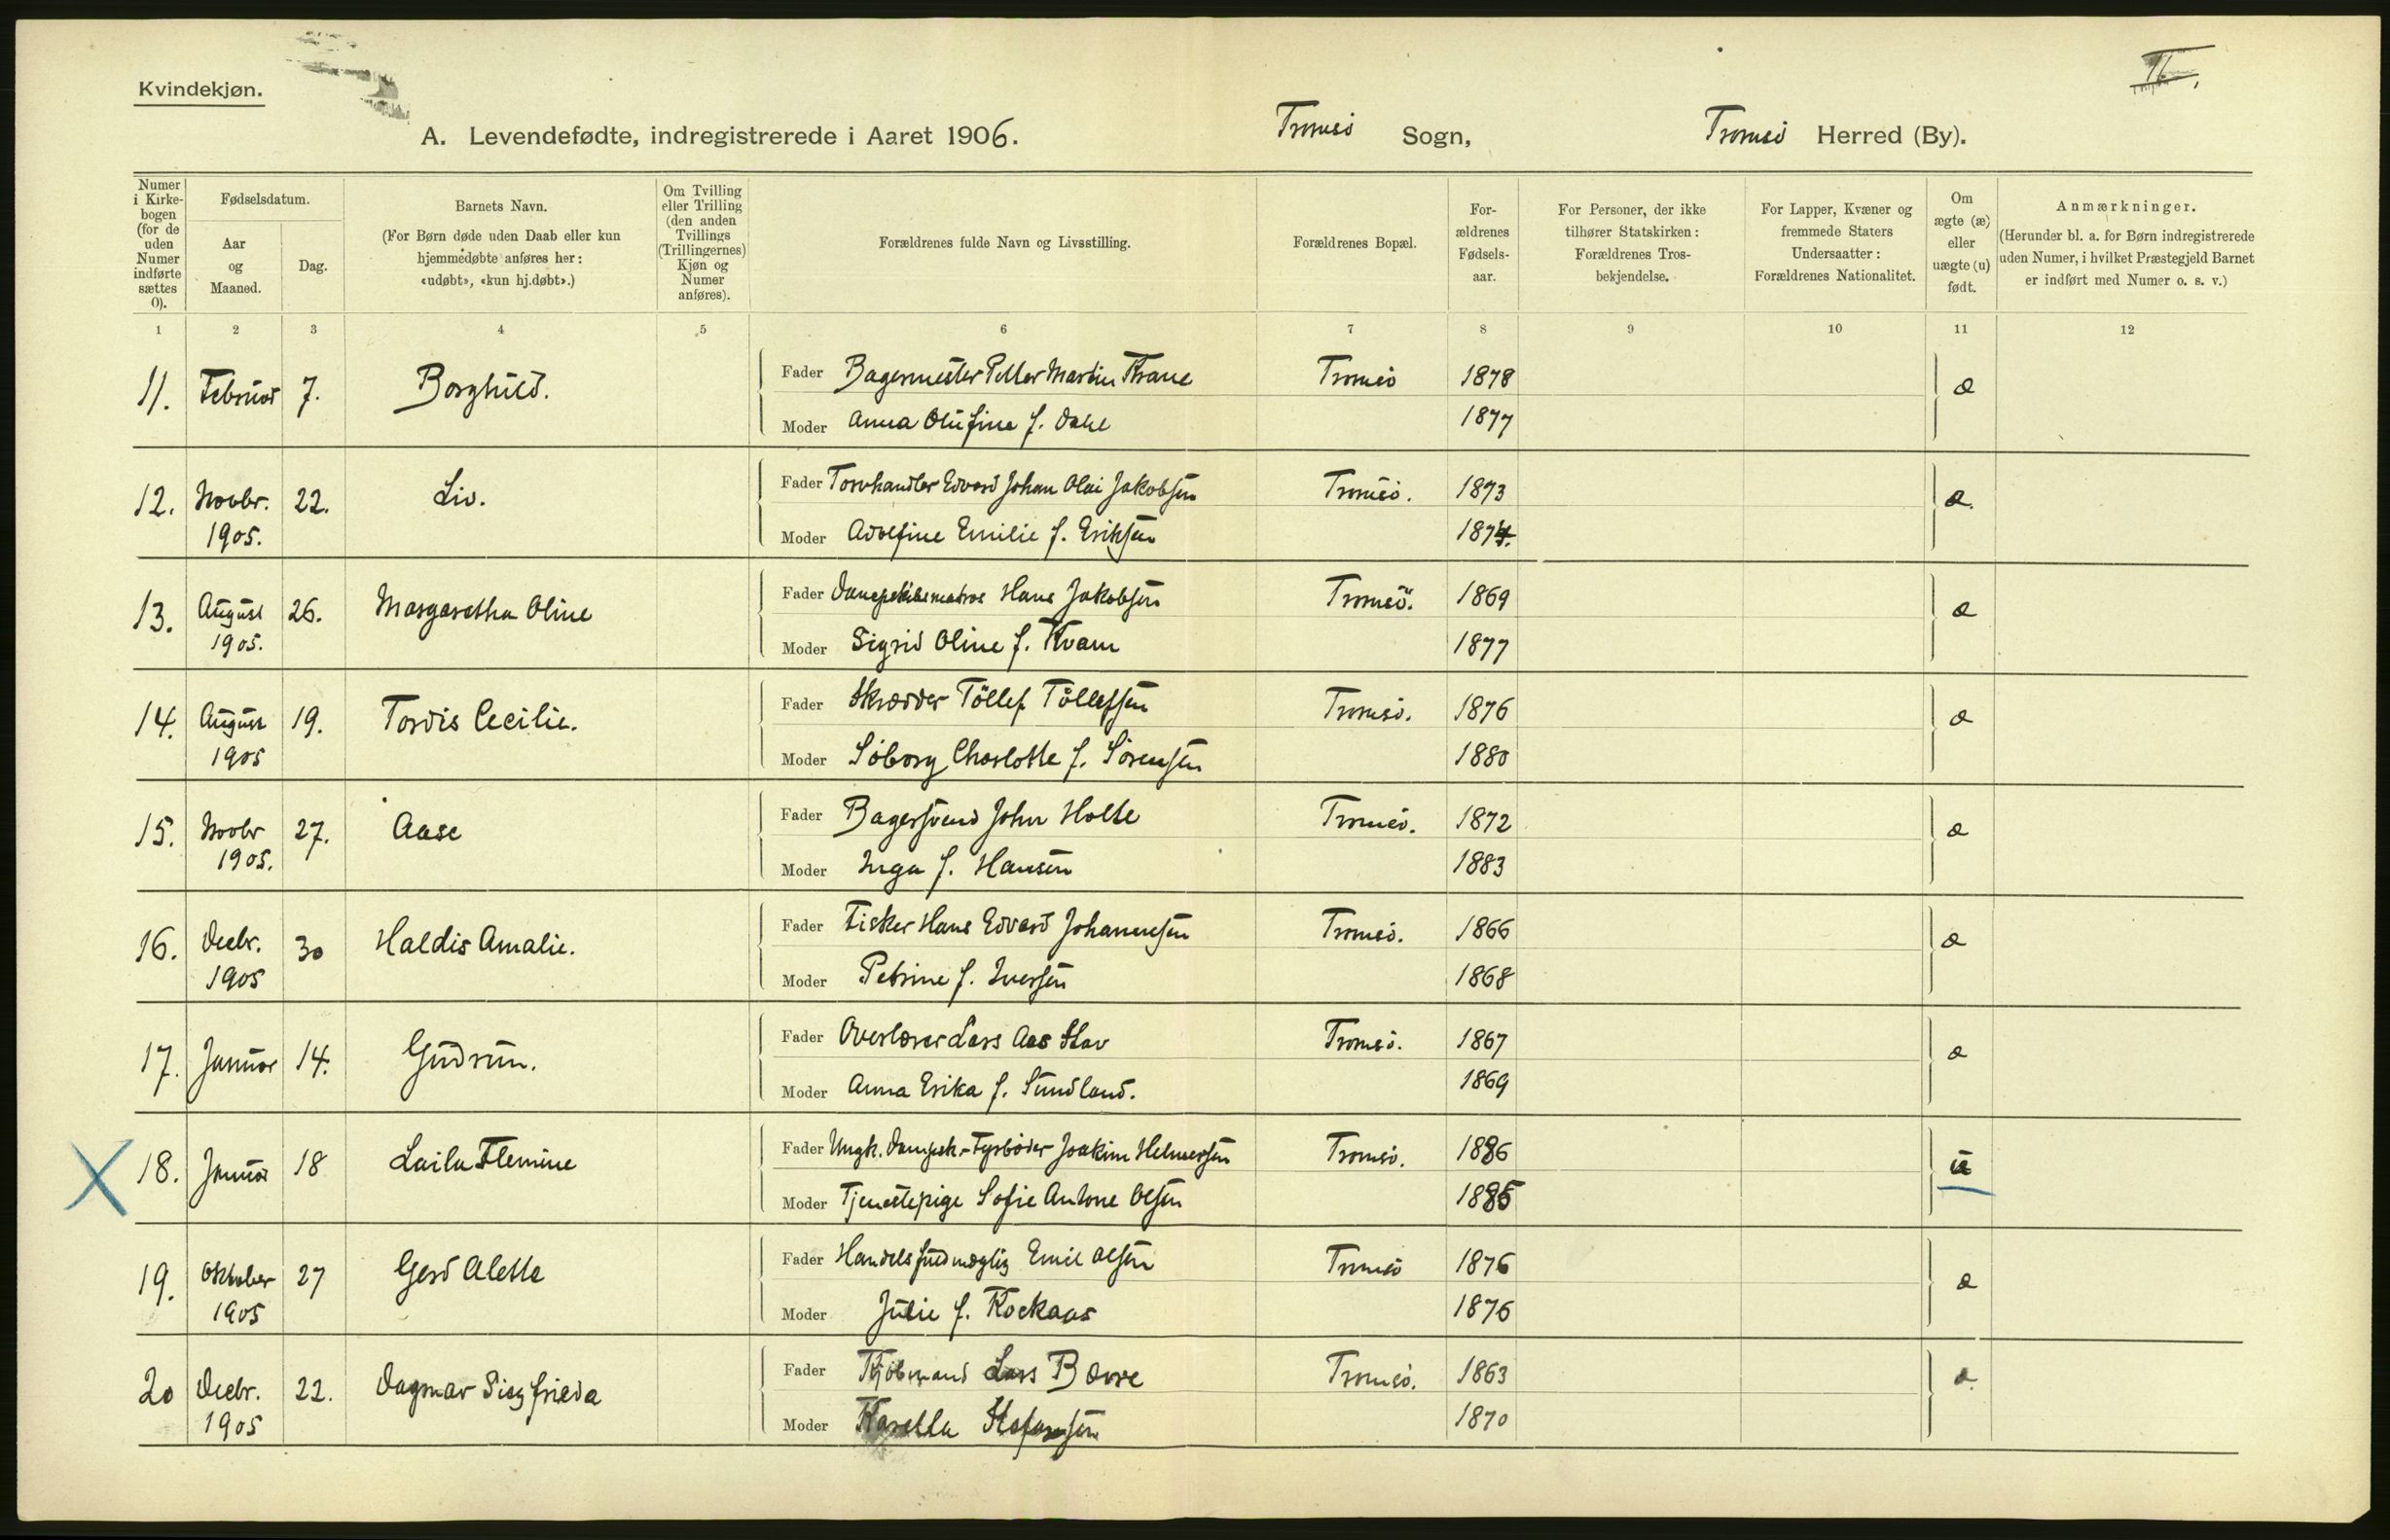 II.
Kvindekjøn.
A. Levendefødte, indregistrerede i Aaret 1906. Tromsö Sogn, Tromsö Herred (By).
Numer i Kirkebogen (for de uden Numer indførte sættes 0).
Fødselsdatum.
Aar og Maaned.
Dag.
Barnets Navn.
(For Børn døde uden Daab eller kun hjemmedøbte anføres her: «udøbt», «kun hj.døbt».)
Om Tvilling eller Trilling (den anden Tvillings (Trillingernes) Kjøn og Numer anføres).
Forældrenes fulde Navn og Livsstilling.
Forældrenes Bopæl.
For-ældrenes Fødsels-aar.
For Personer, der ikke tilhører Statskirken: Forældrenes Tros-bekjendelse.
For Lapper, Kvæner og fremmede Staters Undersaatter: Forældrenes Nationalitet.
Om ægte (æ) eller uægte (u) født.
Anmærkninger.
(Herunder bl. a. for Børn indregistrerede uden Numer, i hvilket Præstegjeld Barnet er indført med Numer o. s. v.)
1 2 3 4 5 6 7 8 9 10 11 12
11. Februar 7. Borghild. Fader Bagermester Petter Martin Thrane Tromsö 1878 æ
Moder Anna Olufine f. Dahl 1877
12. Novbr. 1905. 22. Liv. Fader Torvhandler Edvard Johan Olai Jakobsen Tromsö. 1873 æ.
Moder Adolfine Emilie f. Eriksen 1874.
13. August 1905. 26. Margaretha Oline Fader Dampskibsmatros Hans Jakobsen Tromsö. 1869 æ
Moder Sigrid Oline f. Kvam 1877
14. August 1905 19. Tordis Cecilie. Fader Skrædder Töllef Töllefsen Tromsö. 1876 æ
Moder Söborg Charlotte f. Sörensen 1880
15. Novbr 1905. 27. Aase Fader Bagersvend John Holte Tromsö. 1872 æ
Moder Inga f. Hansen 1883
16. Decbr. 1905 30 Haldis Amalie. Fader Fisker Hans Edvard Johannesen Tromsö. 1866 æ
Moder Petrine f. Iversen 1868
17. Januar 14. Gudrun. Fader Overlærer Lars Aas Stav Tromsö. 1867 æ
Moder Anna Erika f. Sundland. 1869
18. Januar 18 Laila Flemine Fader Ungk. Dampsk.-Fyrböder Joakim Helmersen Tromsö. 1886 u
Moder Tjenestepige Sofie Antone Olsen 1885
19. Oktober 1905 27 Gerd Alette Fader Handelsfuldmægtig Emil Olsen Tromsö 1876 æ
Moder Julie f. Kockaas 1876
20 Decbr. 1905 22. Dagmar Sigfrieda Fader Kjöbmand Lars Bærre Tromsö. 1863 æ.
Moder Karetha Stefansen 1870